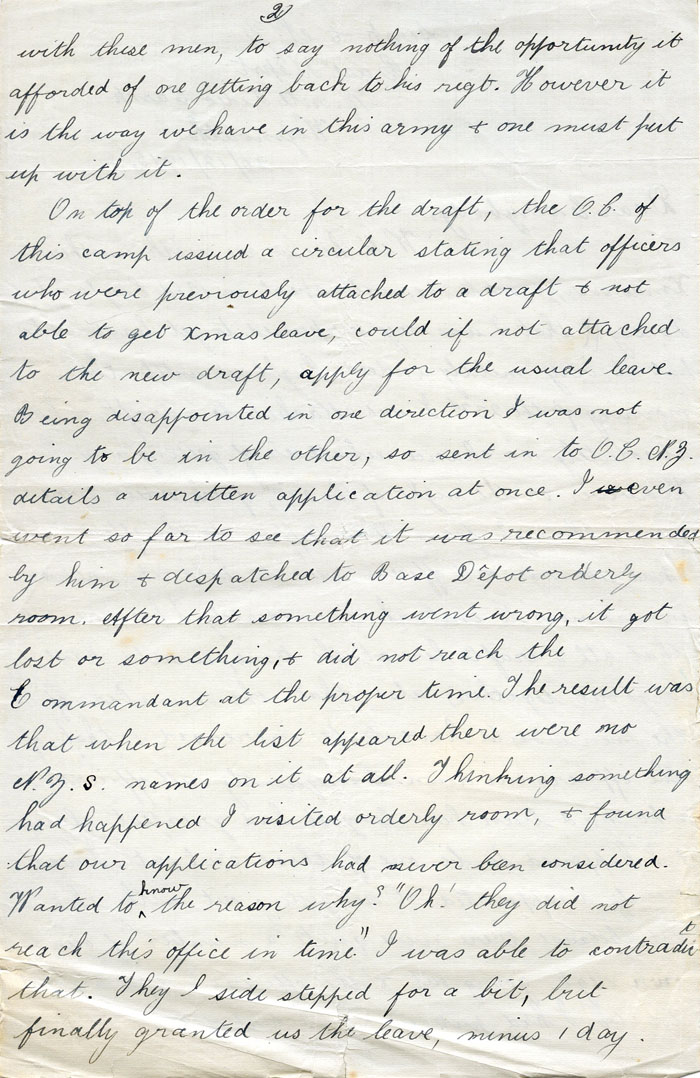 2
with these men, to say nothing of the opportunity it
afforded of one getting back to his regt. However it
is the way we have in this army & one must put
up with it.
On top of the order for the draft, the O.C. of
this camp issued a circular stating that officers
who were previously attached to a draft & not
able to get xmas leave, could if not attached
to the new draft, apply for the usual leave.
Being disappointed in one direction I was not
going to be in the other, so sent in to O.C. N.Z.
details a written application at once. I even
went so far to see that it was recommended
by him & despatched to Base Dêpot orderly
room. After that something went wrong, it got
lost or something, & did not reach the
Commandant at the proper time. The result was
that when the list appeared there were no
N.Z.S. names on it at all. Thinking something
had happened I visited orderly room, & found
that our applications had never been considered.
Wanted to know the reason why? "Oh! they did not
reach this office in time." I was able to contradict
that. They side stepped for a bit, but
finally granted us the leave, minus 1 day.